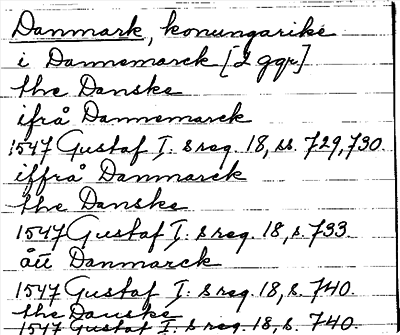 Danmark, konungarike
i Dannemarck [2 ggr]
the Danske
ifrå Dannemarck
1547 Gustaf I: s reg. 18, ss. 729, 730.
iffrå Danmarck
the Danske
1547 Gustaf I: s reg. 18, s. 733.
ått Danmarck
1547 Gustaf I: s reg. 18, s. 740.
the Danske
1547 Gustaf I: s reg. 18, s. 740.